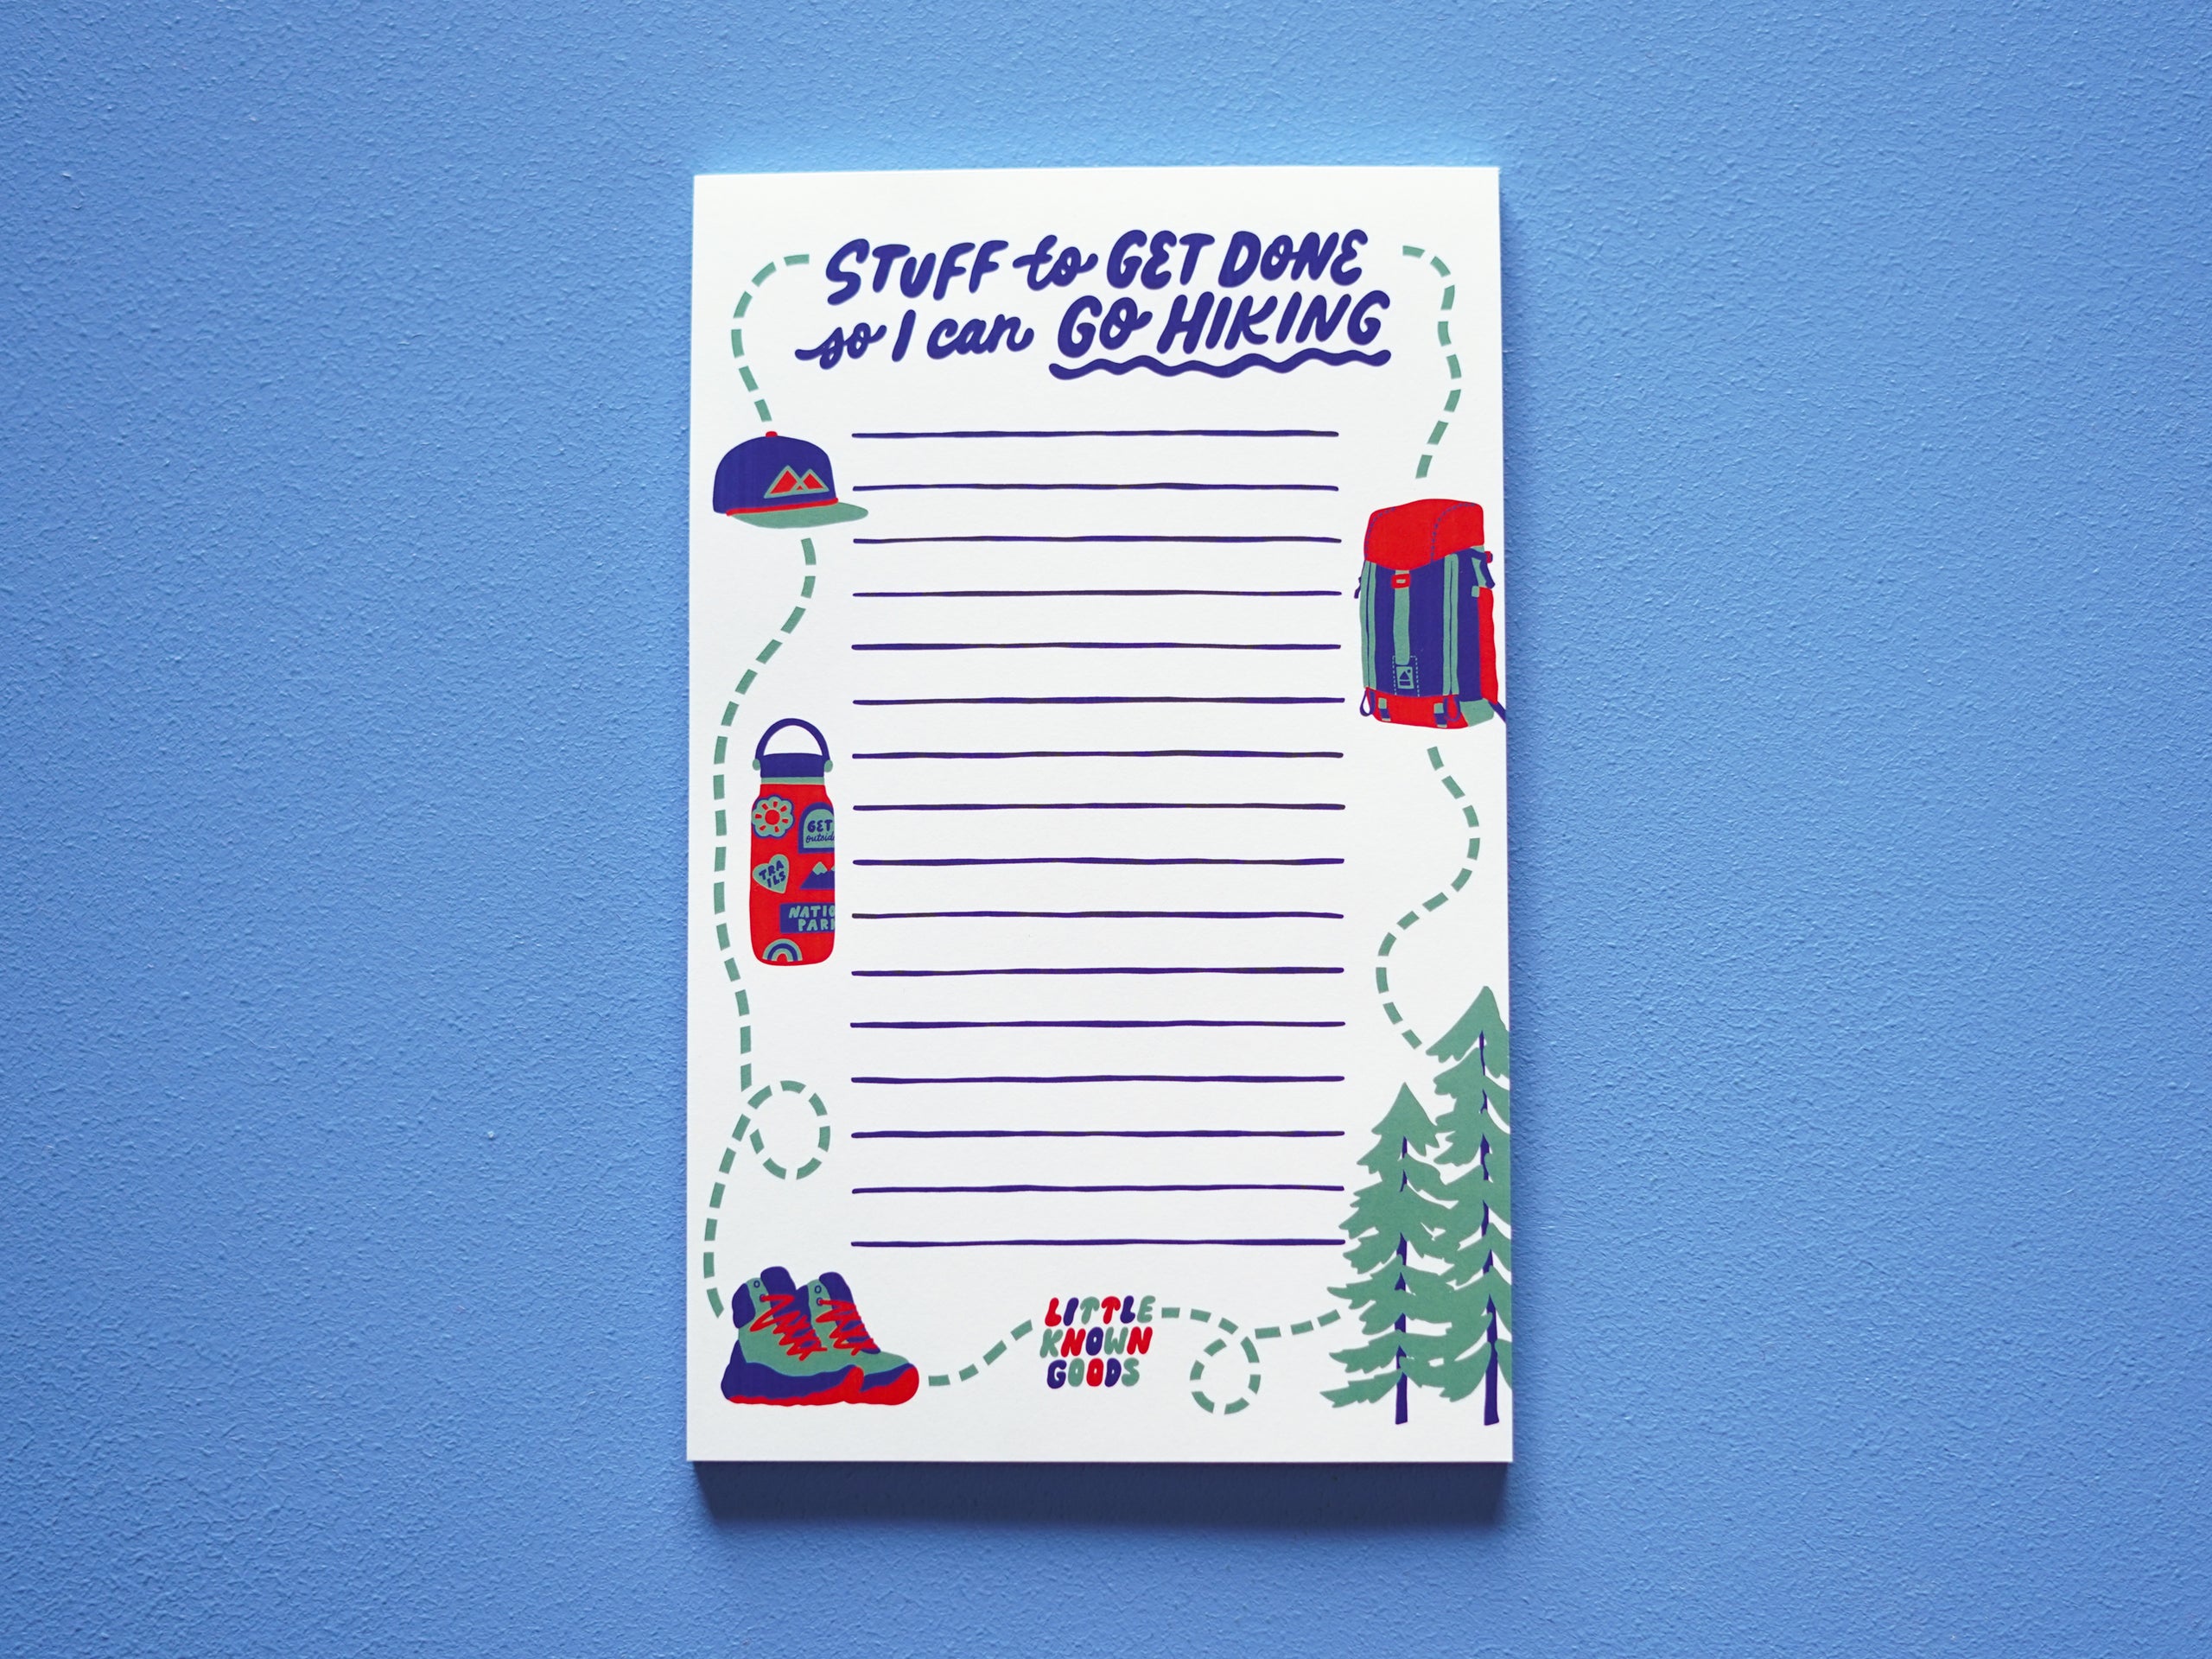 STUFF to GET DONE
so I can GO HIKING
GET
outside
TRA
ILS
NATIO
PARK
LITTLE
KNOWN
GOODS